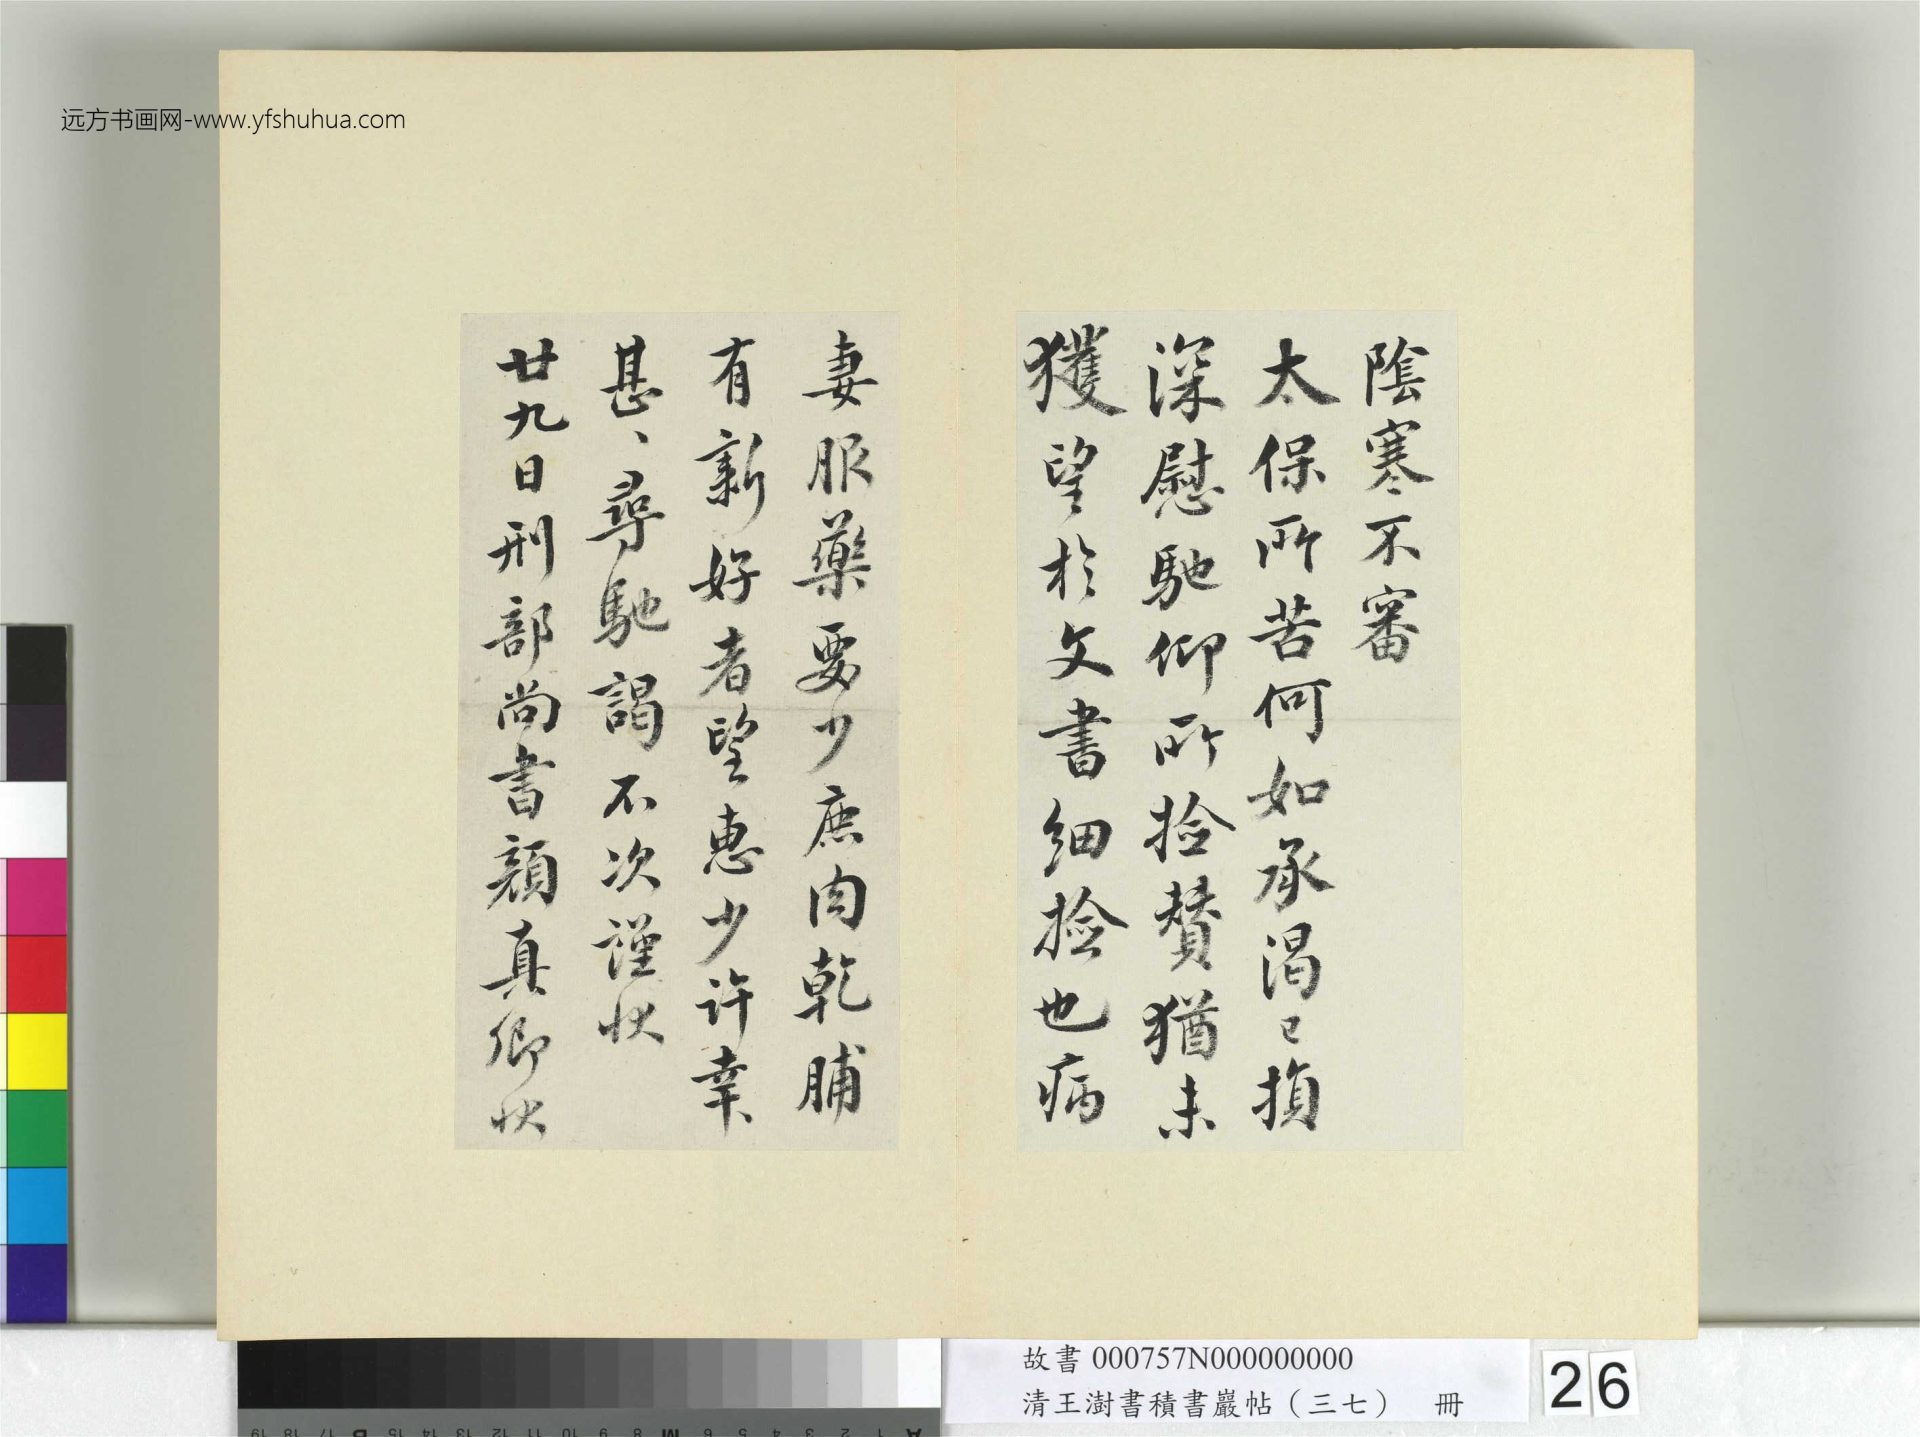 远方书画网-www.yfshuhua.com
陰寒不審
太保所苦何如承渴已損
深慰馳仰所捡賛猶未
獲望於文書細捡也病
妻服藥要少鹿肉乾脯
有新好者望惠少許幸
甚、尋馳謁不次謹状
廿九日刑部尚書顔真卿状
故書 000757N000000000
清王澍書積書巖帖（三七） 冊
26